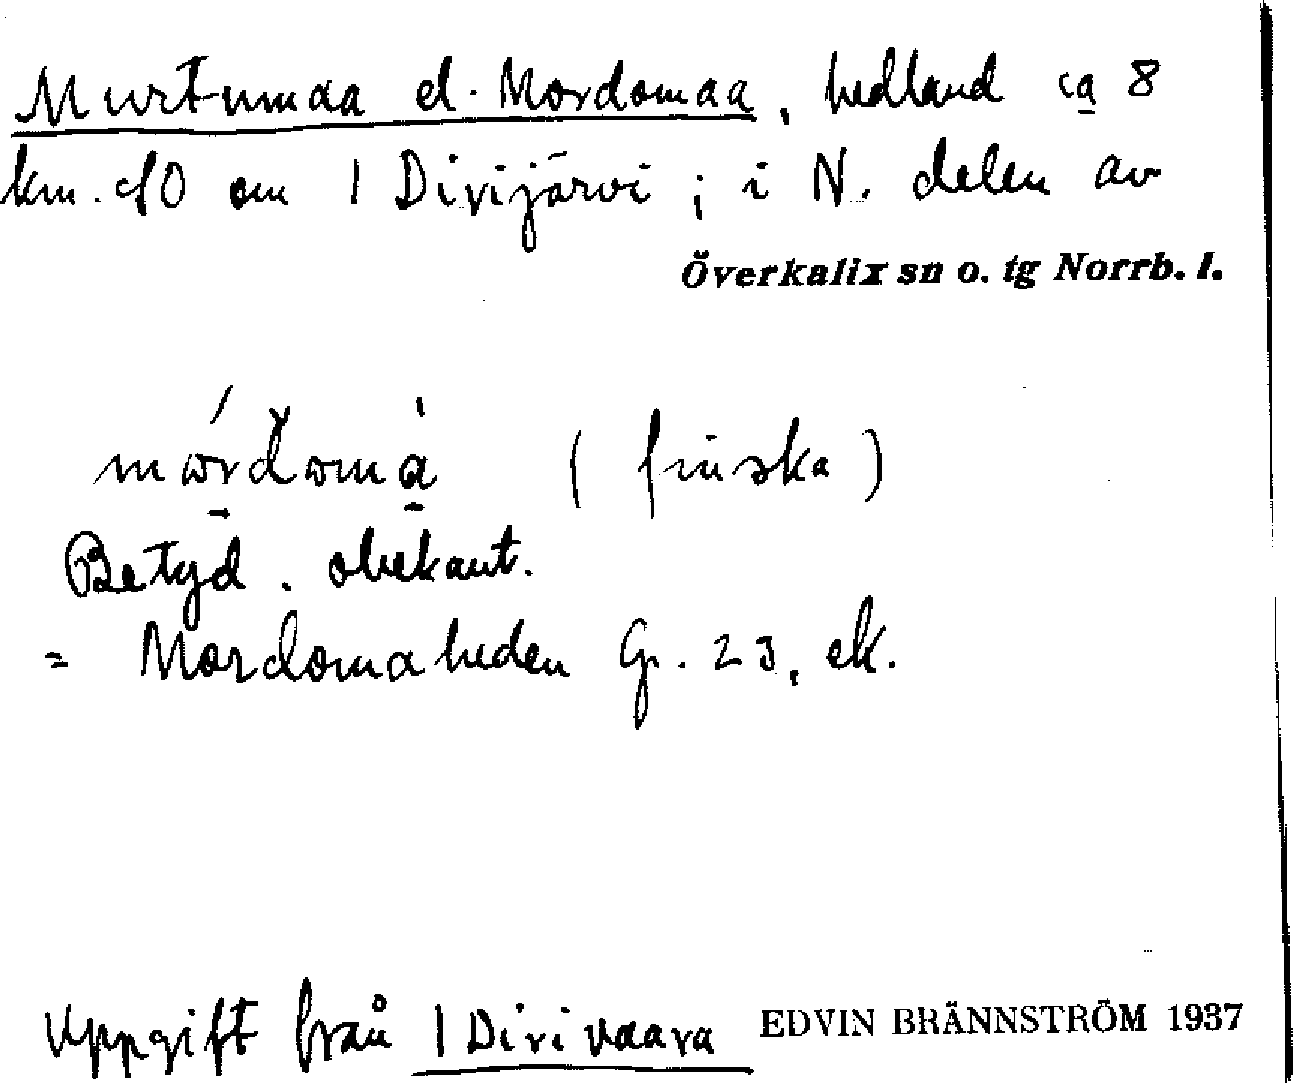 Murtumaa el. Mordomaa, hedland ca 8
km. NO om 1 Divijärvi ; i N. delen av
Överkalix sn o. tg Norrb. l.
(finska)
Betyd. obekant.
= Mordomaheden G. 23, ek.
Uppgift från 1 Dirivaara EDVIN BRÄNNSTRÖM 1937